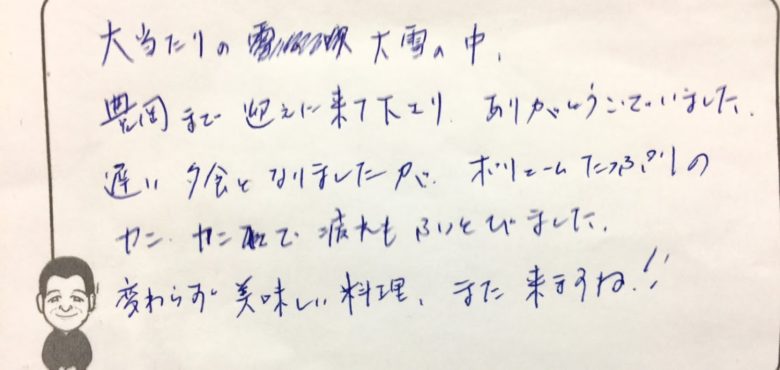 大当たりの 大雪の中、
豊岡まで 迎えに来て下さり、ありがとうございました。
遅い夕食となりましたが、ボリュームたっぷりの
カニ、カニ で 疲れもふいとびました。
変わらず美味しい料理、また来ますね!!